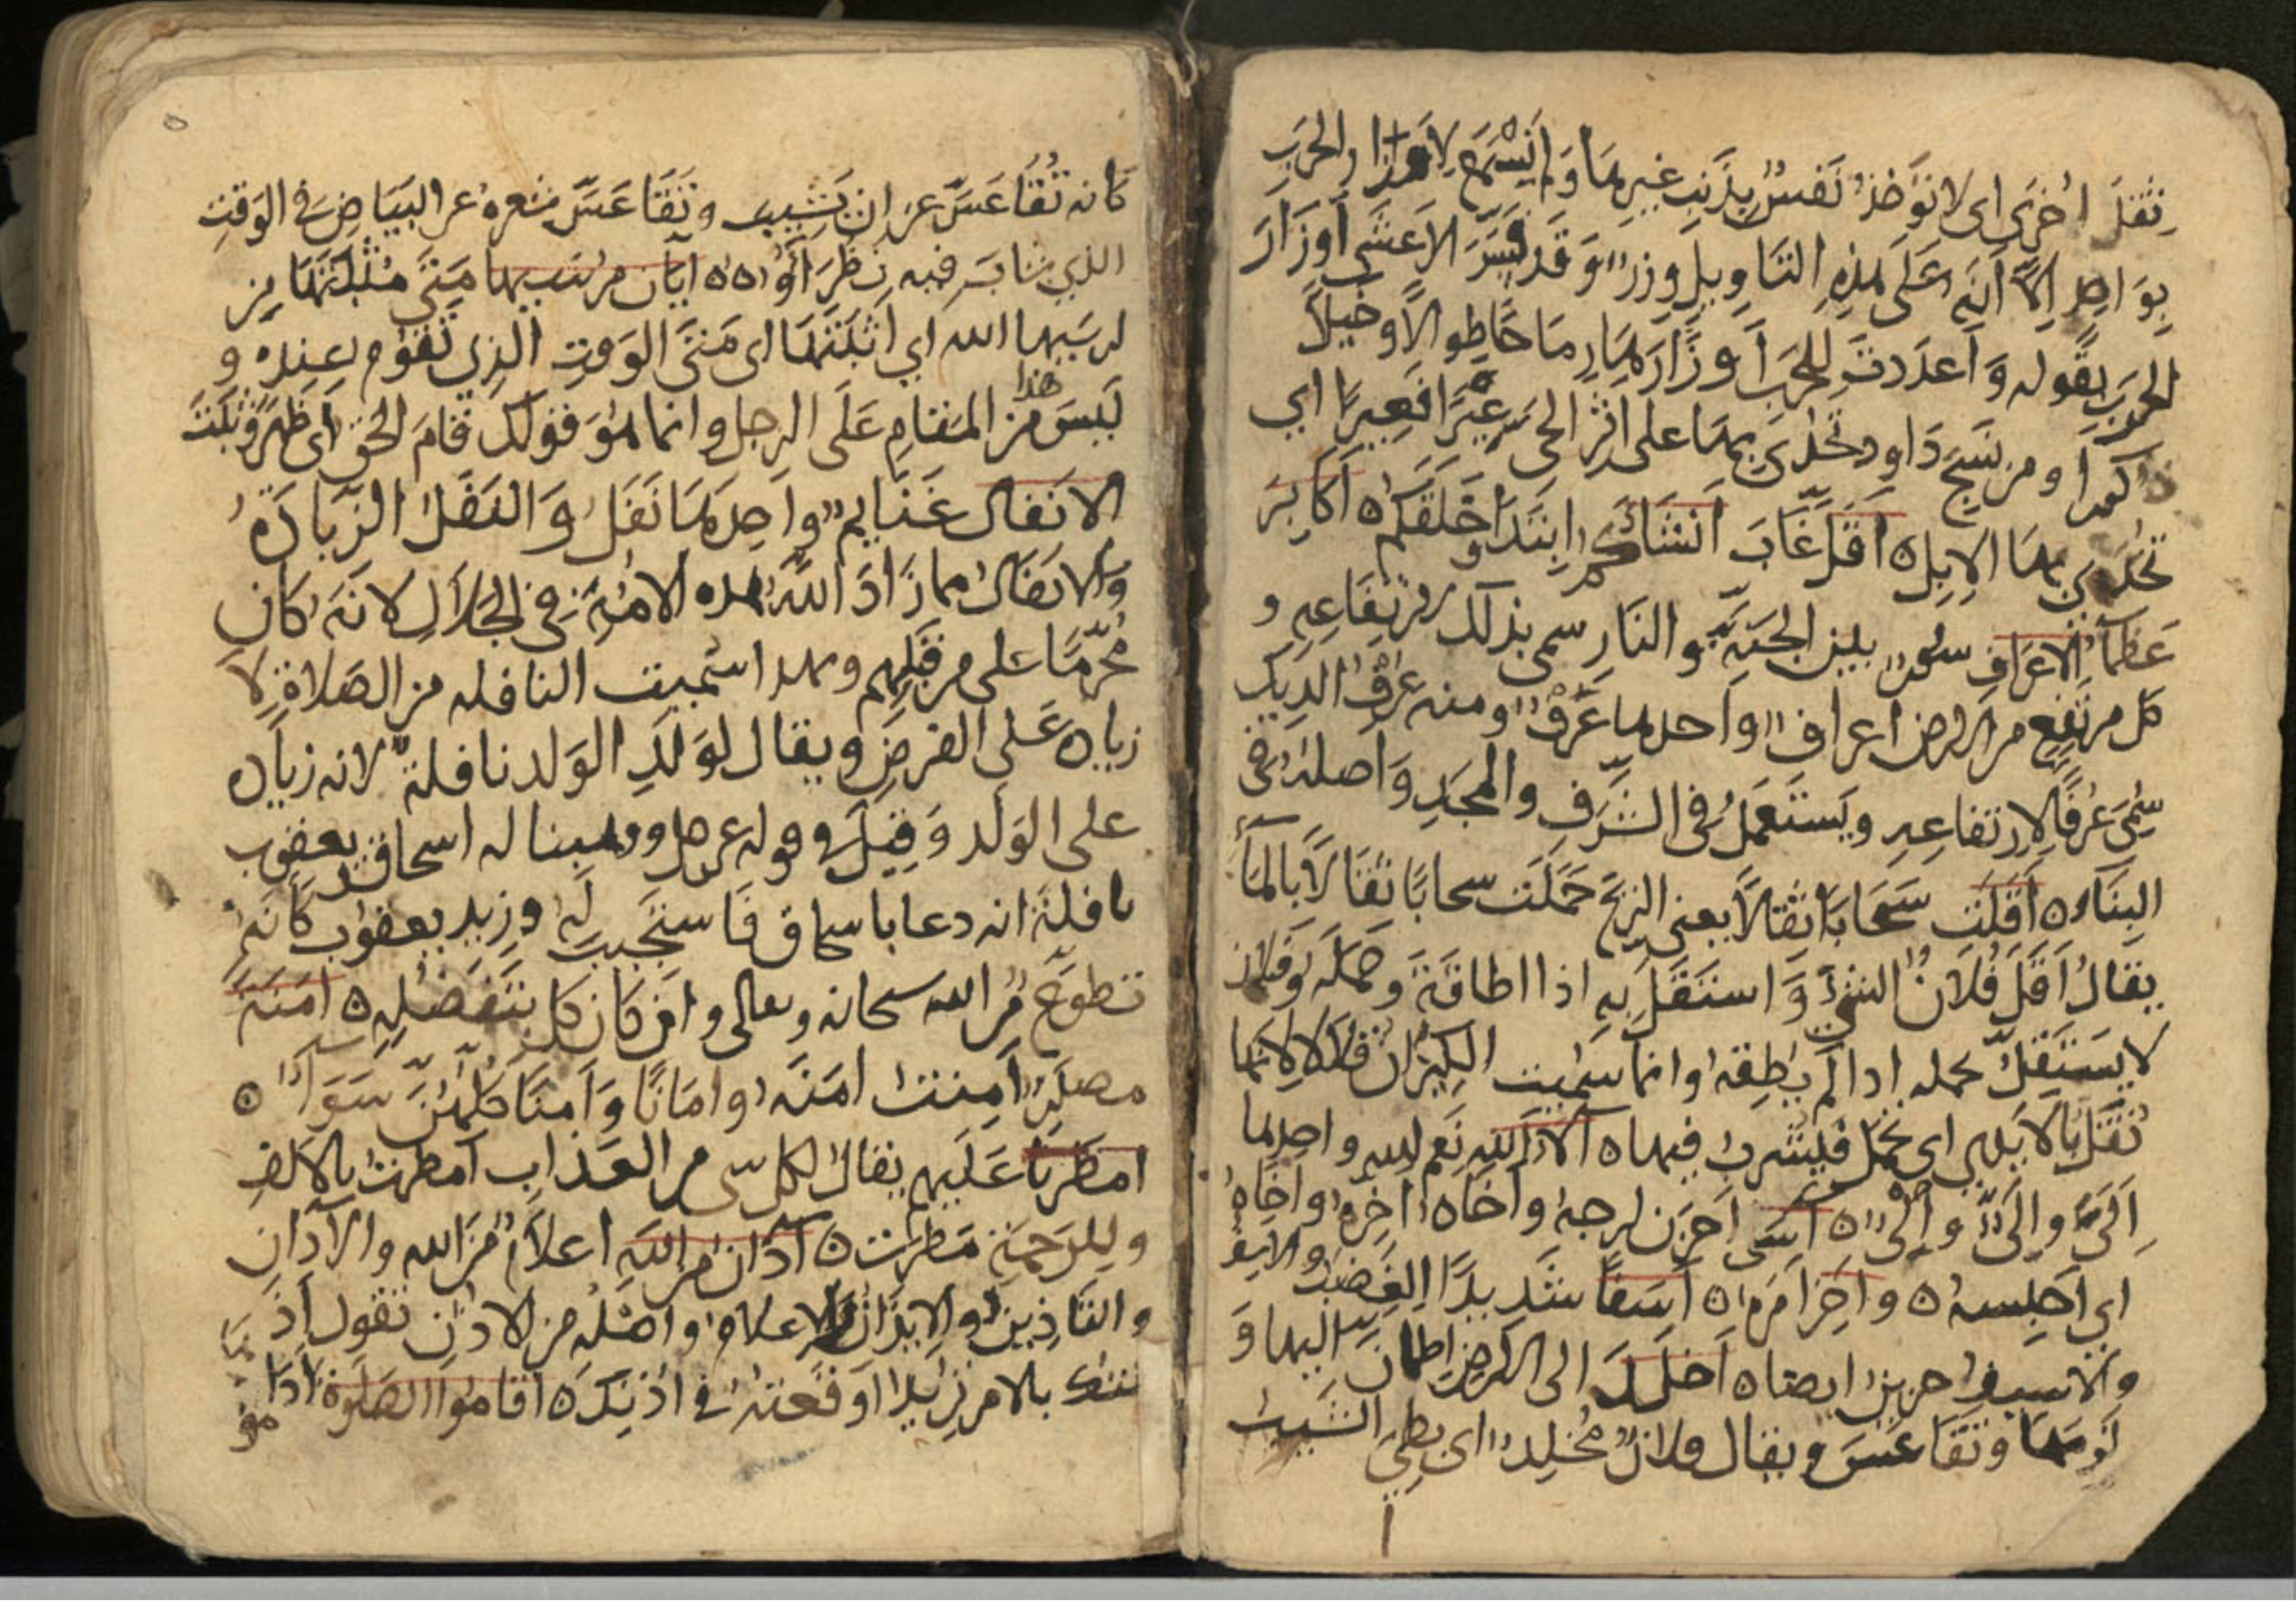 ثقل اخرى اى لا تؤخذ نفس بذنب غيرها ولم يسمع لاوزار الحرب
بواحد الا انه على هذه التاويل وزر وقد فسر الاعشى اوزار
الحرب بقوله واعددت للحرب اوزارها رماحا طوالا وخيلا
ذكورا ومن نسج داود تحدى بها على اثر الحى عيرا فعيرا اي
تحدى بها الابل ه افل غاب انشاكم ابتدا خلقكم ه اكابر
عظما الاعراف سور بين الجنة والنار سمى بذلك لارتفاعه و
كل مرتفع من الارض اعراف واحدها عرف ومنه عرف الديك
سمى عرفا لارتفاعه ويستعمل في الشرف والمجد واصله في
البناء ه اقلت سحابا ثقالا يعني الريح حملت سحابا ثقالا بالماء
يقال اقل فلان الشي واستقل به اذا اطاقة وحمله وفلان
لا يستقل بحمله اذا لم يطقه وانما سميت الكيزان قلالا لانها
تقل بالايدي اى تحمل فيشرب فيها ه آلاء الله نعم الله واحدها
الى والى والى ه اسى احزن ارجه واخاه اخره واخاه
اي احبسه ه واخر امره ه اسفا شديد الغضب والاسف
والاسيف حزين ايضا ه اخلد الى الارض اطمان اليها و
لزمها وتقاعس ويقال فلان مخلد اى بطي الشيب
كانه تقاعس عن ان يشيب وتقاعس شعره عن البياض في الوقت
الذي شاب فيه نظراؤه ه ايان مرسيها متى مثبتها من
ارسيها الله اي اثبتها اى متى الوقت الذي تقوم عنده و
ليس هذا من المقام على الرجل وانما هو قولك قام الحق اى ظهر وثبت
الانفال غنايم واحدها نفل والنفل الزيادة
والانفال مما زاد الله هذه الامة في الحلال لانه كان
محرما على من قبلهم وبهذا سميت النافله من الصلاة لا
زيادة على الفرض ويقال لولد الولد نافلة لانه زيادة
على الولد وقيل في قوله عز وجل ووهبنا له اسحاق ويعقوب
نافلة انه دعا باسحاق فاستجيب له وزيد يعقوب كانه
تطوع من الله سبحانه وتعالى وان كان كل بتفضله ه امنة
مصدر امنت امنة وامانا وامنا كلهن سواء ه
امطرنا عليهم يقال لكل شى من العذاب امطرت بالالف
وللرحمة مطرت ه اذان من الله اعلام من الله والاذان
والتاذين والايذان الاعلام واصله من الاذن تقول اذ
نتك بالامر تريد اوقعته في اذنك ه اقاموا الصلوة اداموها